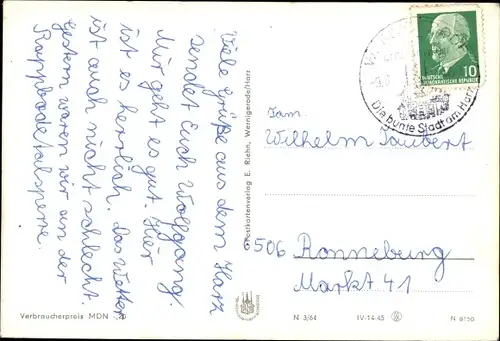 Viele Grüße aus dem Harz
sendet Euch Wolfgang.
Mir geht es gut. Hier
ist es herrlich. Das Wetter
ist auch nicht schlecht.
Gestern waren wir an der
Rappbodetalsperre.
Verbraucherpreis MDN
Postkartenverlag E. Riehn, Wernigerode/Harz
10
DEUTSCHE
DEMOKRATISCHE REPUBLIK
Die bunte Stadt am Harz
Fam.
Wilhelm Taubert
6506 Ronneburg
Markt 41
N 3/64
IV-14-45
N 8150